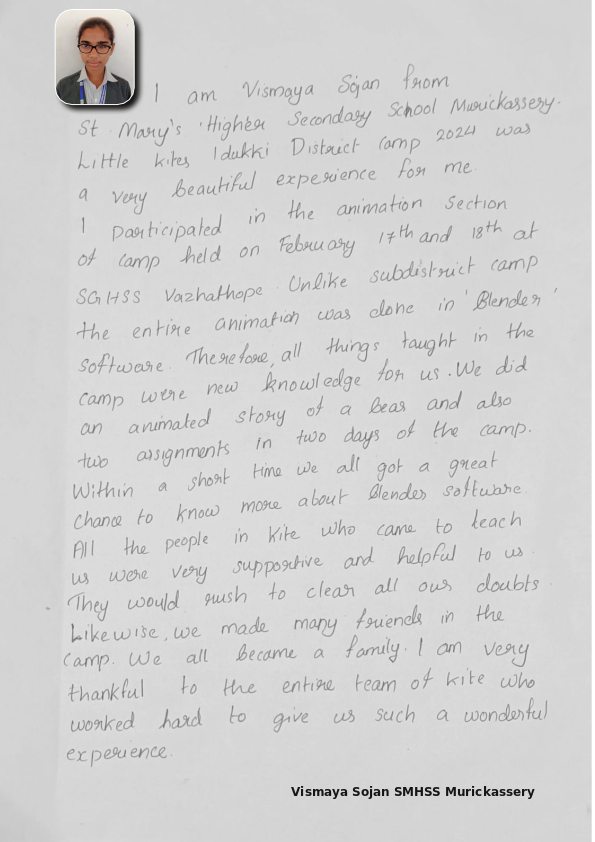 I am Vismaya Sojan from
St Mary's Higher Secondary School Murickassery.
Little kites Idukki District Camp 2024 was
a very beautiful experience for me.
I participated in the animation section
of camp held on February 17th and 18th at
SGHSS Vazhathope. Unlike subdistrict camp
the entire animation was done in 'Blender'
software. Therefore, all things taught in the
camp were new knowledge for us. We did
an animated story of a bear and also
two assignments in two days of the camp.
Within a short time we all got a great
chance to know more about Blender software
All the people in kite who came to teach
us were very supportive and helpful to us.
They would rush to clear all our doubts.
Likewise, we made many friends in the
camp. We all became a family. I am very
thankful to the entire team of kite who
worked hard to give us such a wonderful
experience.
Vismaya Sojan SMHSS Murickassery